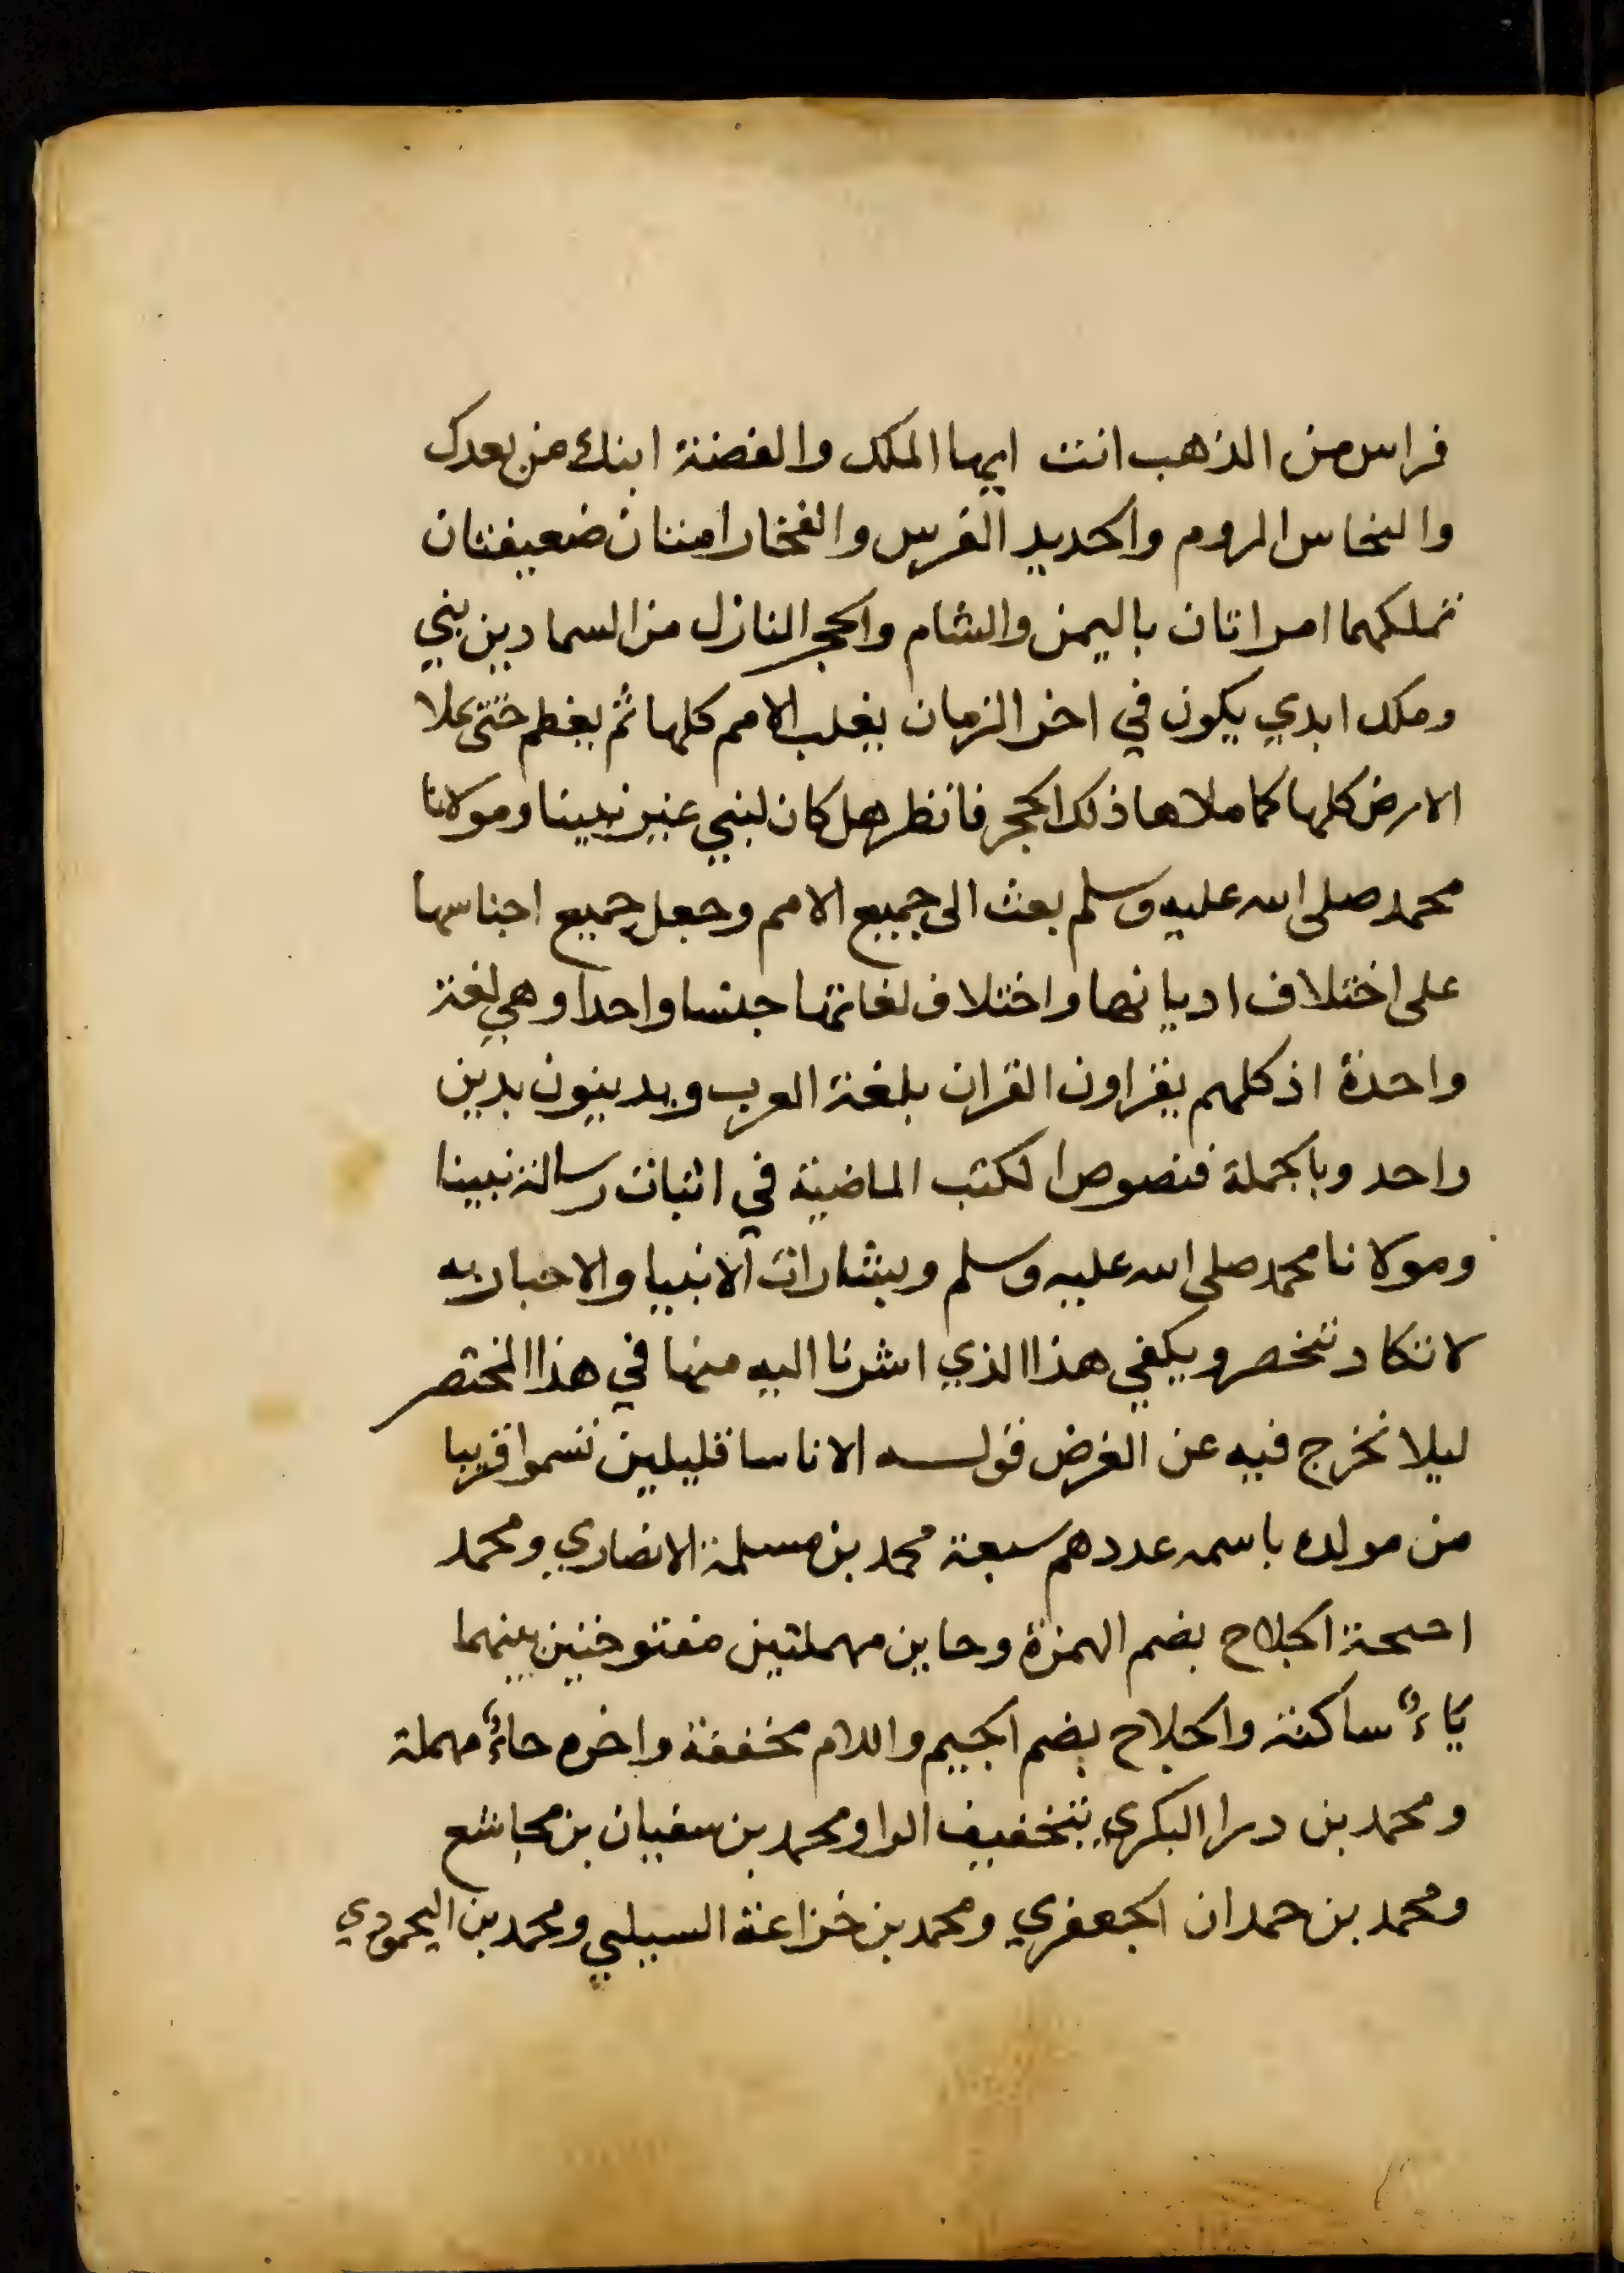 فراس من الذهب انت ايها الملك والفضة ابنك من بعدك
والنحاس الروم والحديد الفرس والفخار امتان ضعيفتان
تملكهما امراتان باليمن والشام والحجر النازل من السما دين نبي
وملك ابدي يكون في اخر الزمان يغلب الامم كلها ثم يعظم حتى يملا
الارض كلها كما ملاها ذلك الحجر فانظر هل كان لنبي غير نبينا ومولانا
محمد صلى الله عليه وسلم بعث الى جميع الامم وجعل جميع اجناسها
على اختلاف اديانها واختلاف لغاتها جنسا واحدا وهي لغة
واحدة اذ كلهم يقراون القران بلغة العرب ويدينون بدين
واحد وبالجملة فنصوص الكتب الماضية في اثبات رسالة نبينا
ومولانا محمد صلى الله عليه وسلم وبشارات الانبيا والاحبار به
لا تكاد تنحصر ويكفي هذا الذي اشرنا اليه منها في هذا المختصر
ليلا نخرج فيه عن الغرض قوله الا ناسا قليلين تسموا قريبا
من مولده باسمه عددهم سبعة محمد بن مسلمة الانصاري ومحمد
احيحة الجلاح بضم الهمزة وحاين مهملتين مفتوحتين بينهما
ياءٌ ساكنة والجلاح بضم الجيم واللام مخففة واخره حاءٌ مهملة
ومحمد بن درا البكري بتخفيف الرا ومحمد بن سفيان بن مجاشع
ومحمد بن حمدان الجعفري ومحمد بن خزاعة السيلبي ومحمد بن اليحمودي